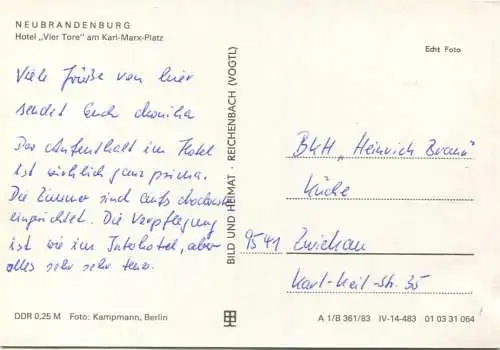 NEUBRANDENBURG
Hotel „Vier Tore" am Karl-Marx-Platz
Echt Foto
Viele Grüße von hier
sendet Euch Monika
Der Aufenthalt im Hotel
ist wirklich ganz prima.
Die Zimmer sind aufs
eingerichtet. Die Verpflegung
ist wie im Interhotel, aber
alles sehr sehr teuer.
BILD UND HEIMAT · REICHENBACH (VOGTL)
BKH „Heinrich Braun"
Küche
9541 Zwickau
Karl-Keil-Str. 35
DDR 0,25 M Foto: Kampmann, Berlin
A 1/B 361/83 IV-14-483 01 03 31 064